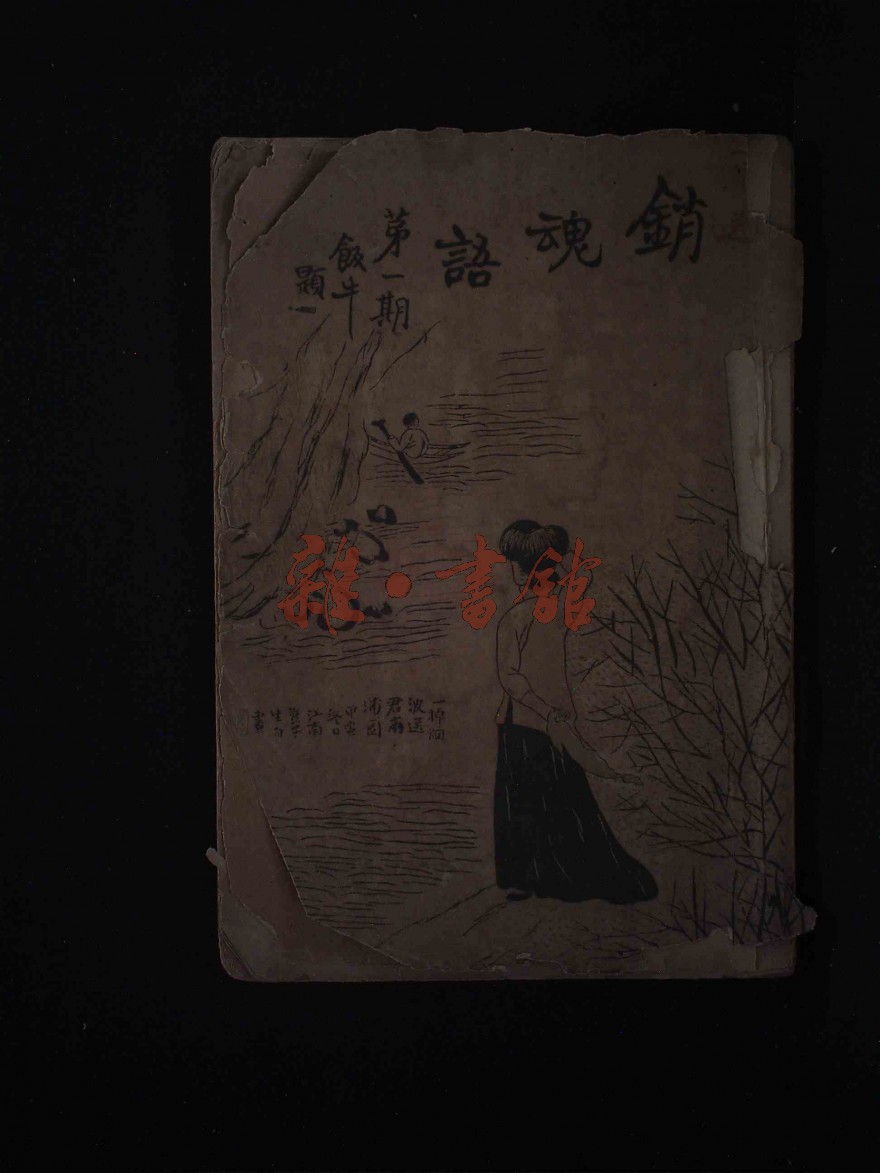 銷魂語
第一期
飯牛
題
一棹烟
波送
君南
浦圖
甲寅
冬日
江南
生
畫
雜·書館